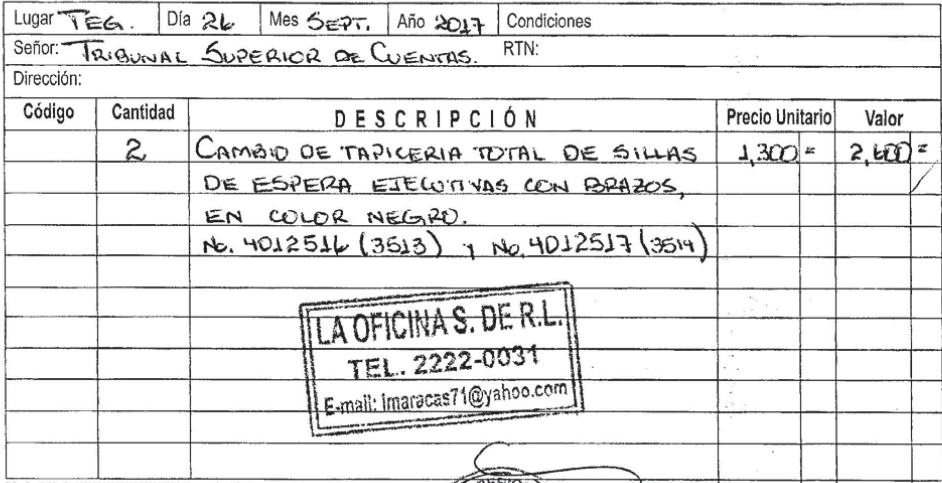 Lugar TEG. Día 26 Mes SEPT. Año 2017 Condiciones
Señor: TRIBUNAL SUPERIOR DE CUENTAS. RTN:
Dirección:
Código Cantidad DESCRIPCIÓN Precio Unitario Valor
2 CAMBIO DE TAPICERIA TOTAL DE SILLAS 1,300= 2,600=
DE ESPERA EJECUTIVAS CON BRAZOS,
EN COLOR NEGRO.
No. 4012516 (3513) y No. 4012517 (3514)
LA OFICINA S. DE R.L.
TEL.. 2222-0031
E-mail: imaracas71@yahoo.com